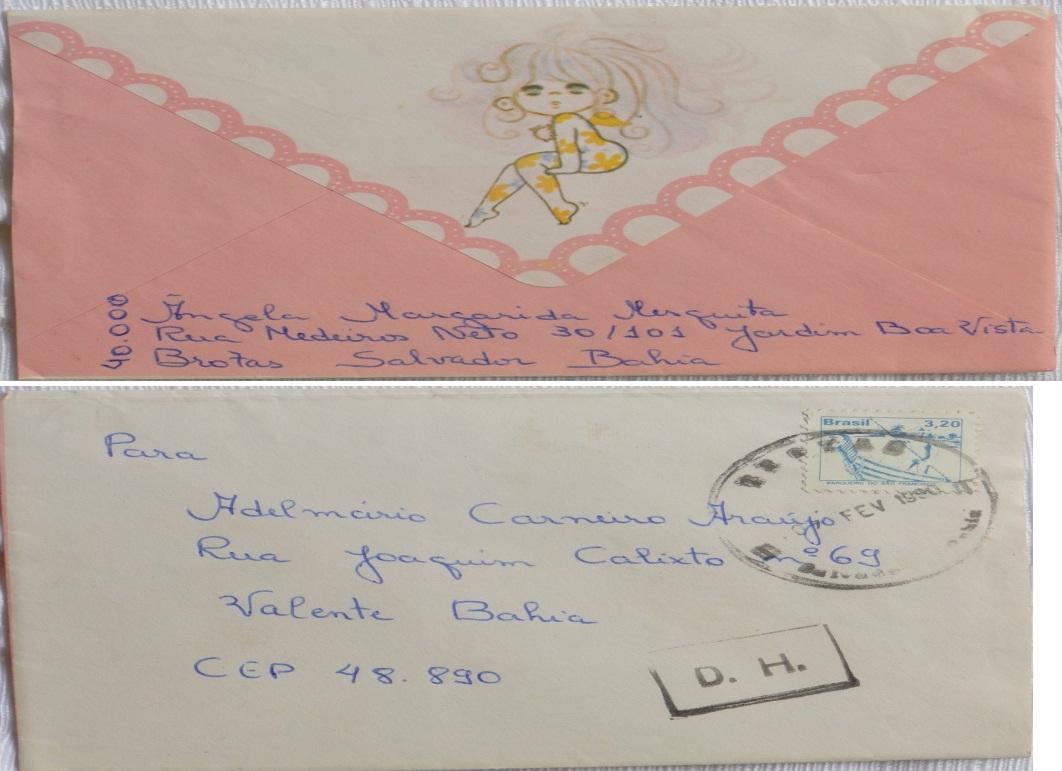 Ângela Margarida Mesquita
Rua Medeiros Neto 30/101 Jardim Boa Vista
Brotas Salvador Bahia
40.000
Para
Adelmário Carneiro Araújo
Rua Joaquim Calixto nº 69
Valente Bahia
CEP 48.890
Brasil 3,20
BARQUEIRO DO SÃO FRANCISCO
BROTAS
FEV 1980
D. H.